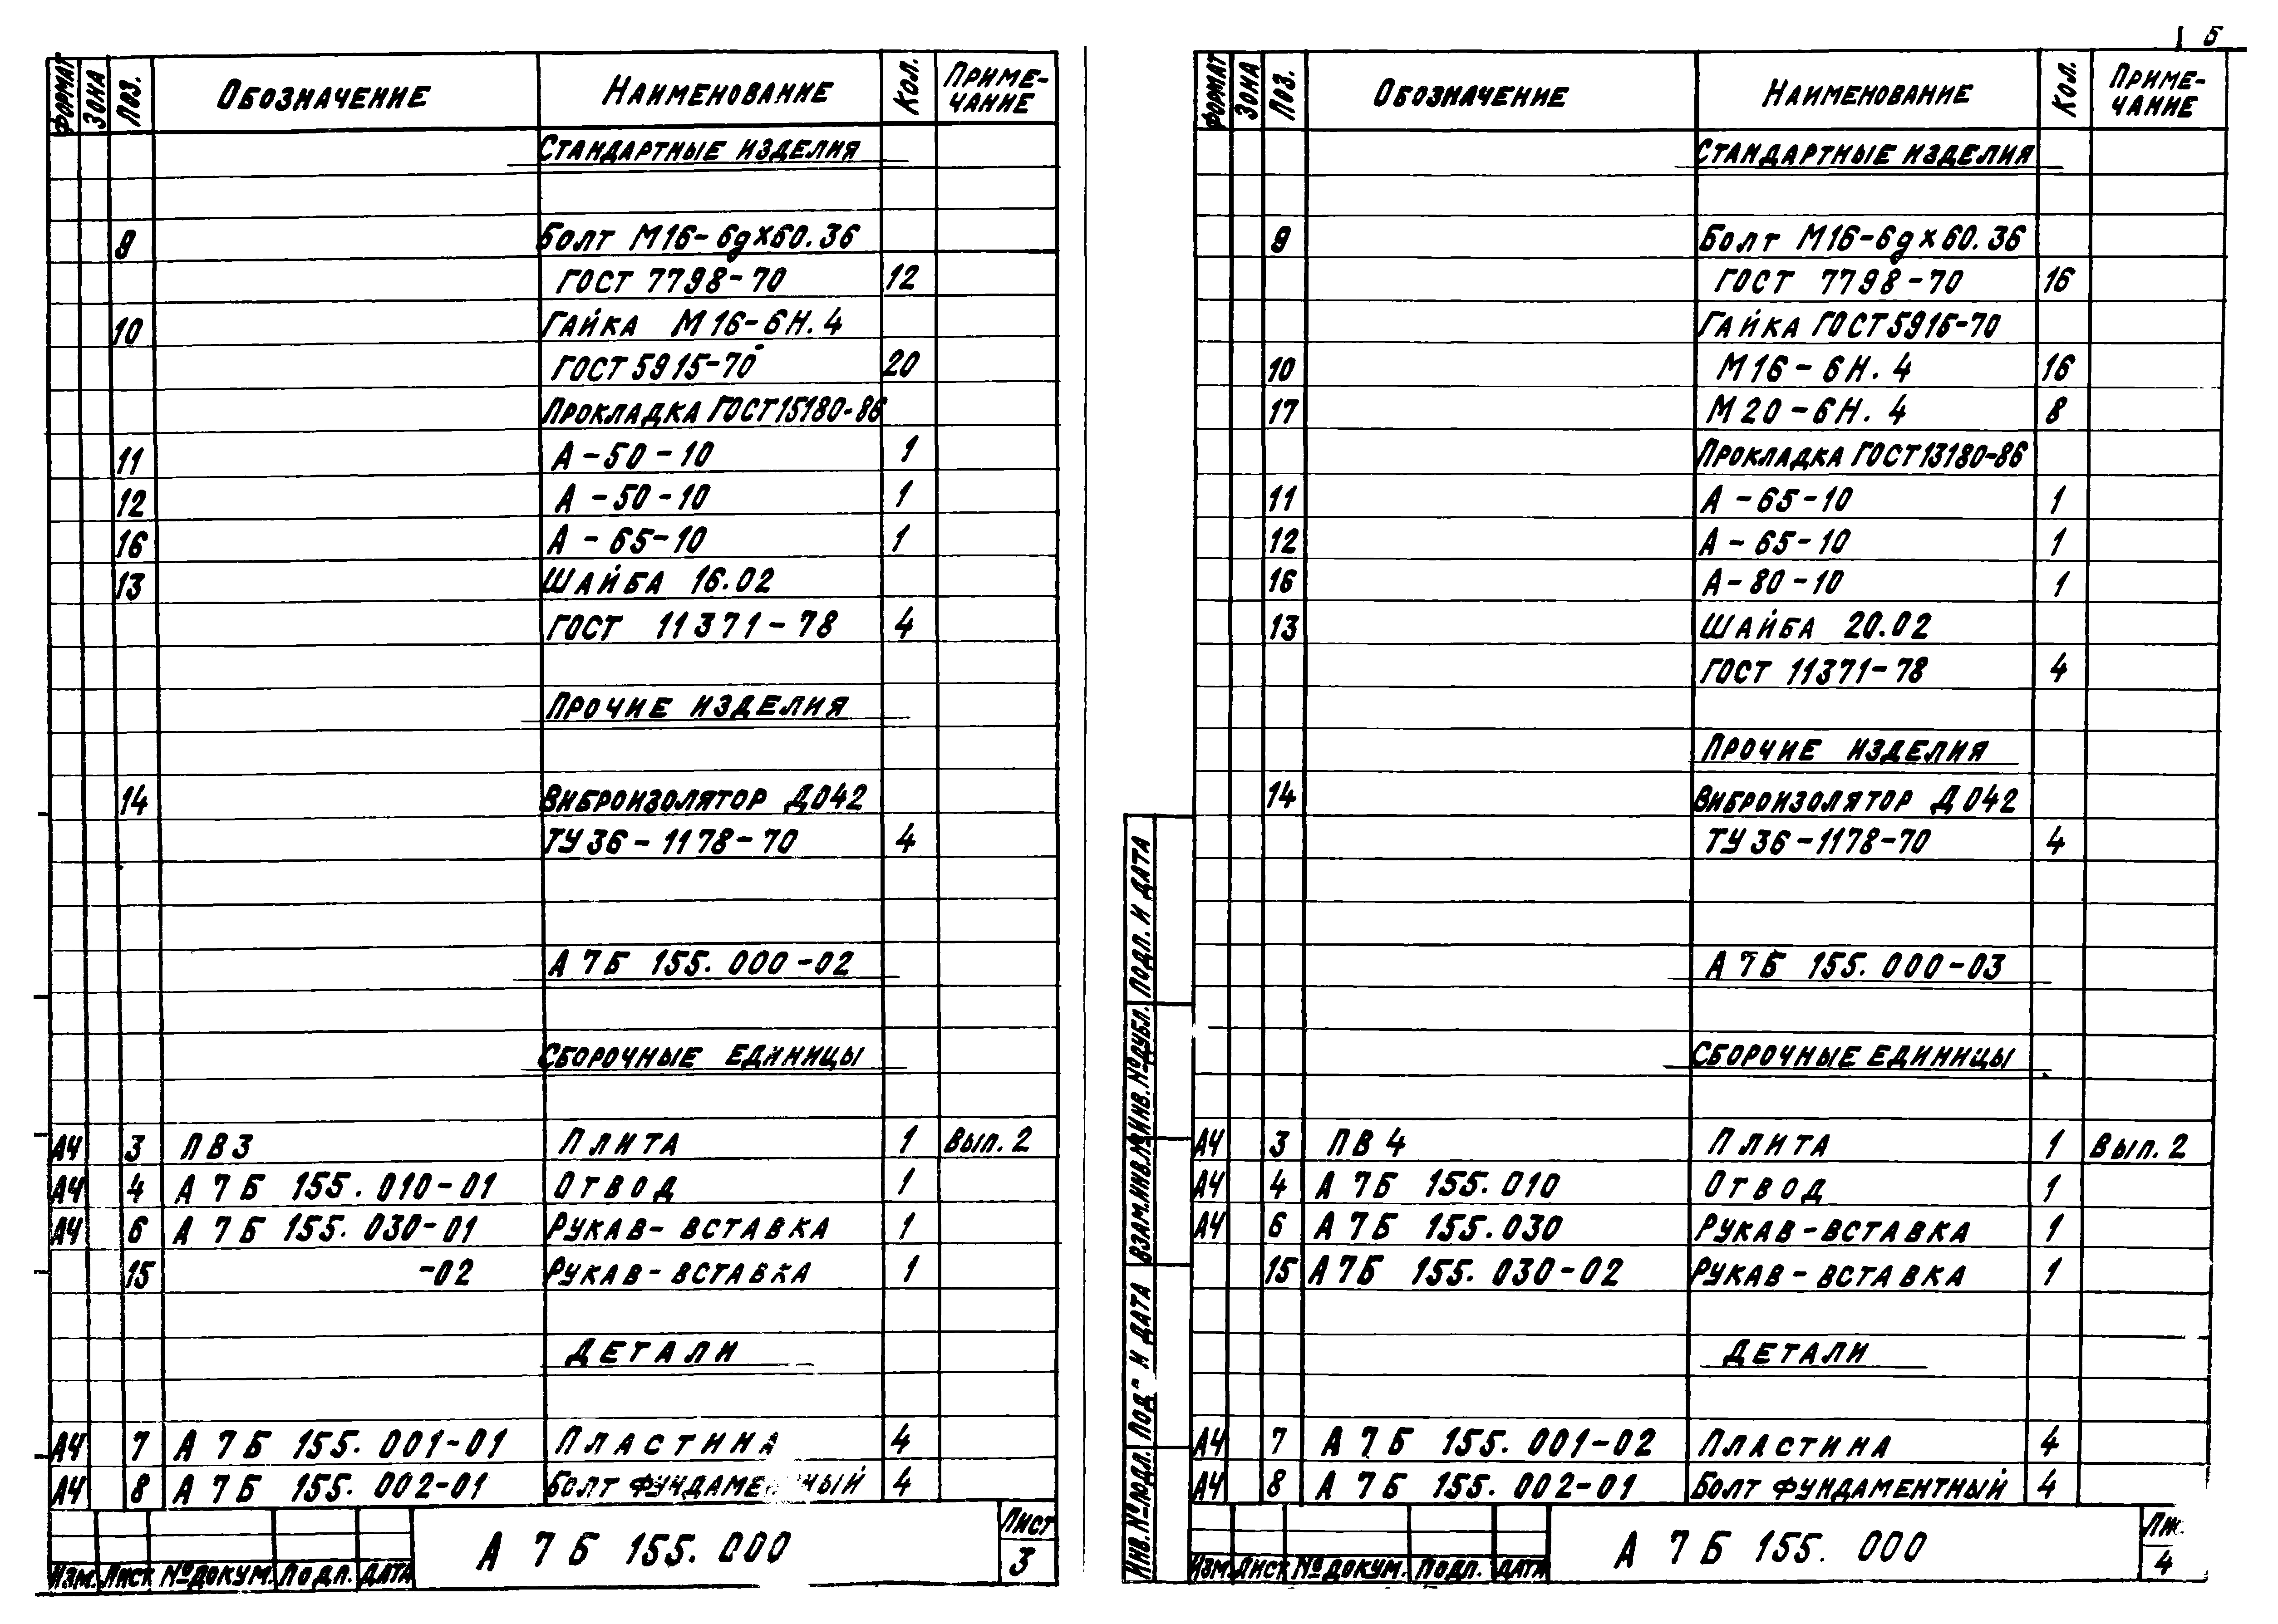 5
ФОРМАТ ЗОНА ПОЗ. ОБОЗНАЧЕНИЕ НАИМЕНОВАНИЕ КОЛ. ПРИМЕ-
ЧАНИЕ
СТАНДАРТНЫЕ ИЗДЕЛИЯ
9 БОЛТ М16-6gх60.36
ГОСТ 7798-70 12
10 ГАЙКА М16-6Н.4
ГОСТ 5915-70 20
ПРОКЛАДКА ГОСТ 15180-86
11 А-50-10 1
12 А-50-10 1
16 А-65-10 1
13 ШАЙБА 16.02
ГОСТ 11371-78 4
ПРОЧИЕ ИЗДЕЛИЯ
14 ВИБРОИЗОЛЯТОР Д042
ТУ 36-1178-70 4
А 7Б 155.000-02
СБОРОЧНЫЕ ЕДИНИЦЫ
А4 3 ПВ3 ПЛИТА 1 ВЫП. 2
А4 4 А 7Б 155.010-01 ОТВОД 1
А4 6 А 7Б 155.030-01 РУКАВ-ВСТАВКА 1
15 -02 РУКАВ-ВСТАВКА 1
ДЕТАЛИ
А4 7 А 7Б 155.001-01 ПЛАСТИНА 4
А4 8 А 7Б 155.002-01 БОЛТ ФУНДАМЕНТНЫЙ 4
ИЗМ. ЛИСТ № ДОКУМ. ПОДП. ДАТА
А 7Б 155.000
ЛИСТ
3
ФОРМАТ ЗОНА ПОЗ. ОБОЗНАЧЕНИЕ НАИМЕНОВАНИЕ КОЛ. ПРИМЕ-
ЧАНИЕ
СТАНДАРТНЫЕ ИЗДЕЛИЯ
9 БОЛТ М16-6gх60.36
ГОСТ 7798-70 16
ГАЙКА ГОСТ 5915-70
10 М16-6Н.4 16
17 М20-6Н.4 8
ПРОКЛАДКА ГОСТ 13180-86
11 А-65-10 1
12 А-65-10 1
16 А-80-10 1
13 ШАЙБА 20.02
ГОСТ 11371-78 4
ПРОЧИЕ ИЗДЕЛИЯ
14 ВИБРОИЗОЛЯТОР Д042
ТУ 36-1178-70 4
А 7Б 155.000-03
СБОРОЧНЫЕ ЕДИНИЦЫ
А4 3 ПВ4 ПЛИТА 1 ВЫП. 2
А4 4 А 7Б 155.010 ОТВОД 1
А4 6 А 7Б 155.030 РУКАВ-ВСТАВКА 1
15 А7Б 155.030-02 РУКАВ-ВСТАВКА 1
ДЕТАЛИ
А4 7 А 7Б 155.001-02 ПЛАСТИНА 4
А4 8 А 7Б 155.002-01 БОЛТ ФУНДАМЕНТНЫЙ 4
ИНВ. № ПОДЛ. ПОДП. И ДАТА ВЗАМ. ИНВ. № ИНВ. № ДУБЛ. ПОДП. И ДАТА
ИЗМ. ЛИСТ № ДОКУМ. ПОДП. ДАТА
А 7Б 155.000
4